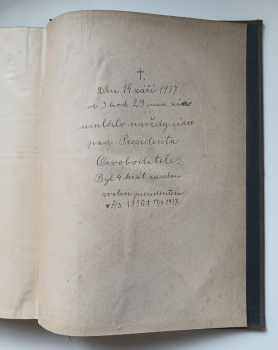 †.
Dne 14 září 1937
o 3 hod 29 min ráno
umlklo navždy srdce
pana Presidenta
Osvoboditele.
Byl 4 krát zvolen
presidentem